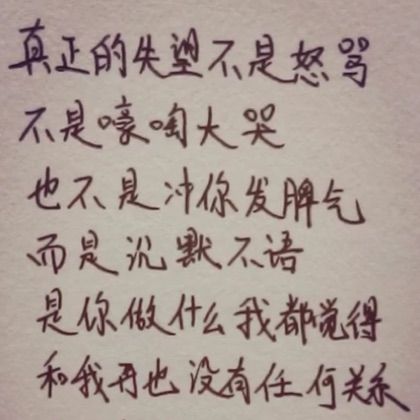 真正的失望不是怒骂
不是嚎啕大哭
也不是冲你发脾气
而是沉默不语
是你做什么我都觉得
和我再也没有任何关系